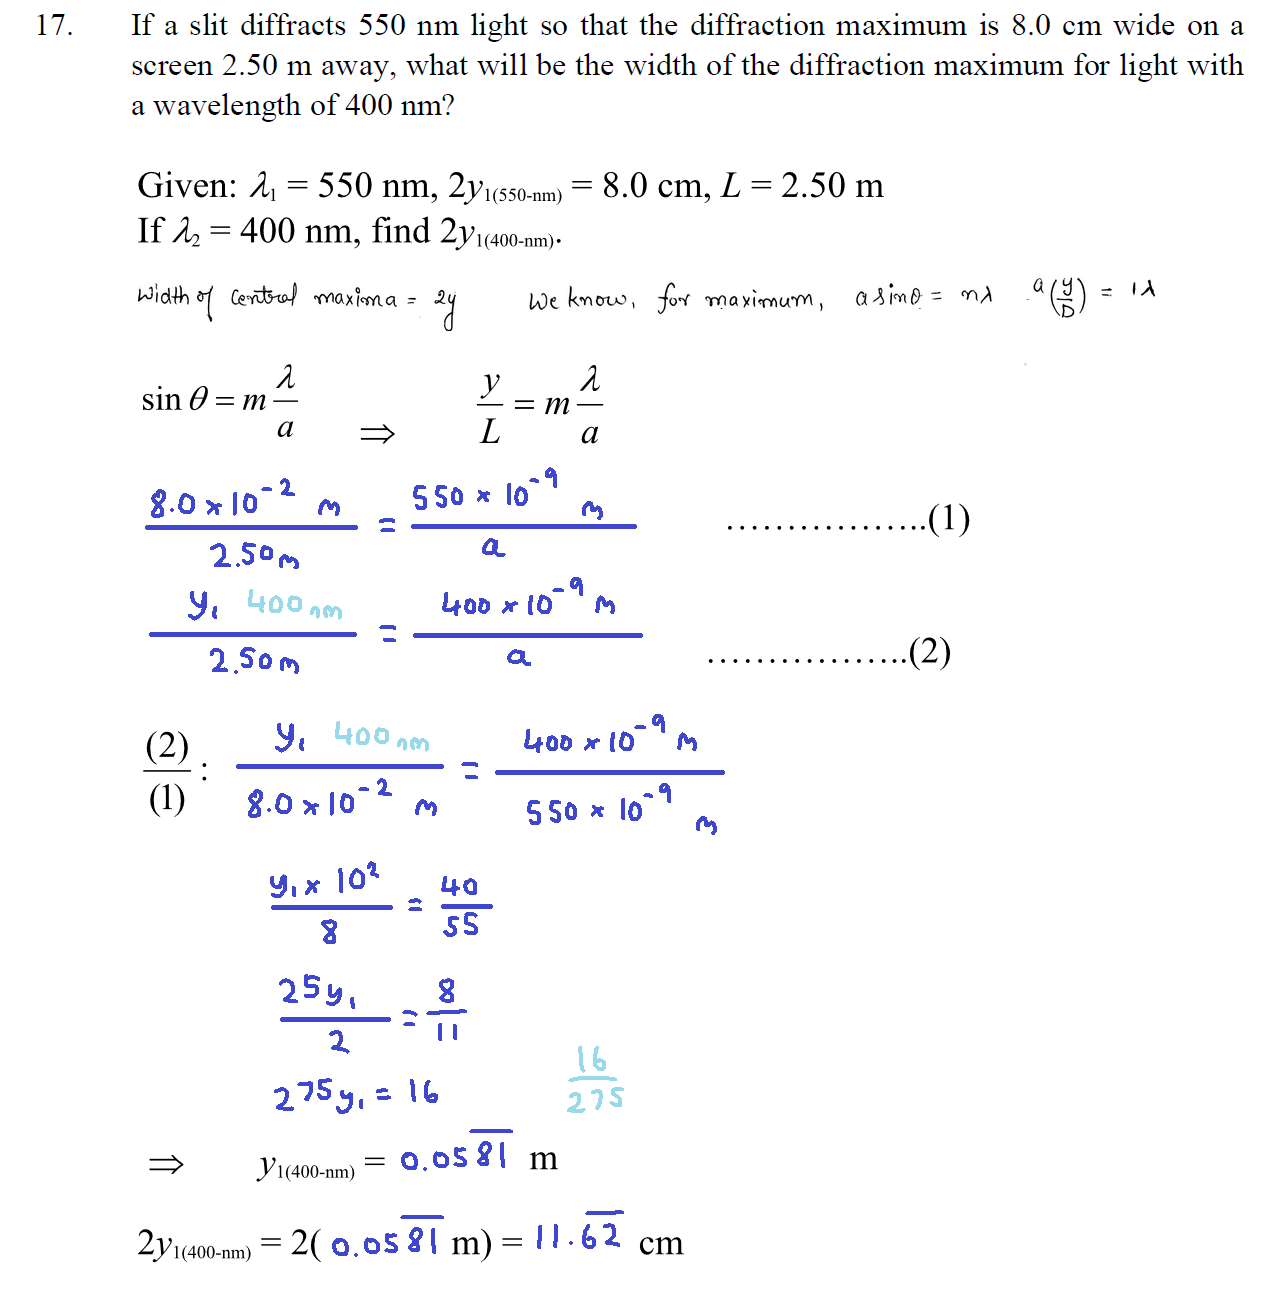 17. If a slit diffracts 550 nm light so that the diffraction maximum is 8.0 cm wide on a
screen 2.50 m away, what will be the width of the diffraction maximum for light with
a wavelength of 400 nm?
Given: λ₁ = 550 nm, 2y₁₍₅₅₀₋ₙₘ₎ = 8.0 cm, L = 2.50 m
If λ₂ = 400 nm, find 2y₁₍₄₀₀₋ₙₘ₎.
Width of central maxima = 2y We know, for maximum, a sinθ = nλ a(y/D) = 1λ
sin θ = m λ/a ⇒ y/L = m λ/a
8.0 × 10⁻² m / 2.50 m = 550 × 10⁻⁹ m / a .................(1)
y₁ 400 nm / 2.50 m = 400 × 10⁻⁹ m / a .................(2)
(2)/(1) : y₁ 400 nm / 8.0 × 10⁻² m = 400 × 10⁻⁹ m / 550 × 10⁻⁹ m
y₁ × 10² / 8 = 40/55
25y₁ / 2 = 8/11
275y₁ = 16 16/275
⇒ y₁₍₄₀₀₋ₙₘ₎ = 0.058̅1̅ m
2y₁₍₄₀₀₋ₙₘ₎ = 2( 0.058̅1̅ m) = 11.6̅2̅ cm